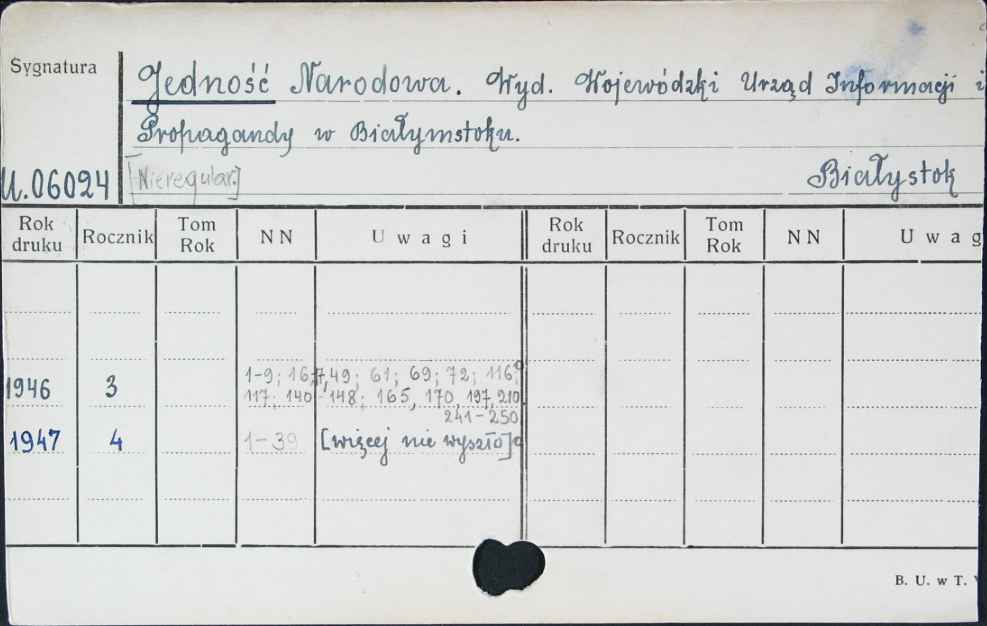 Sygnatura
Jedność Narodowa. Wyd. Wojewódzki Urząd Informacji i
Propagandy w Białymstoku.
U.06024
[Nieregular.]
Białystok
Rok druku Rocznik Tom Rok NN Uwagi Rok druku Rocznik Tom Rok NN Uwag
1946 3 1-9; 16, 49; 61; 69; 72; 116;
117; 140-148; 165, 170, 197, 210
241-250
1947 4 1-39 [więcej nie wyszło]
B. U. w T.